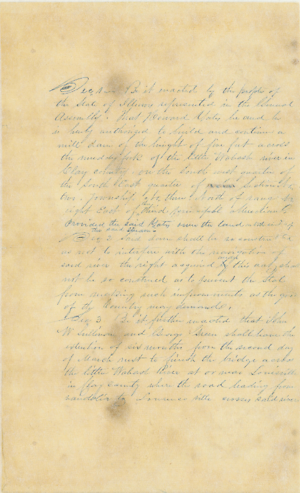 Sec 1 Be it enacted by the people of
the State of Illinois represented in the General
Assembly: That Howard Yates be and he
is hereby authorized to build and continue a
mill dam of the height of five feet across
the main of the Little Wabash river in
Clay county on the South west quarter of
the South East quarter of Section
Township three North of range
eight East of third principal meridian
Provided the said Yates owns the land
Sec 2 Said dam shall be so constructed
as not to interfere with the navigation of
said river the right acquired by this
not to be so construed as to prevent the State
from making such improvements as the
of the County may demand:
Sec 3 Be it further enacted that John
W. and Green shall have the
extention of six months from the second day
of March next to finish the bridge across
the Little Wabash River at or near Louisville
in Clay county where the road leading from
to Louisville crosses said river